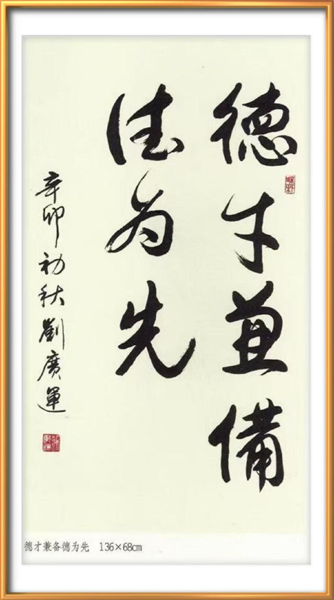 德才兼備
德為先
辛卯初秋劉廣運
德才兼备德为先 136×68cm